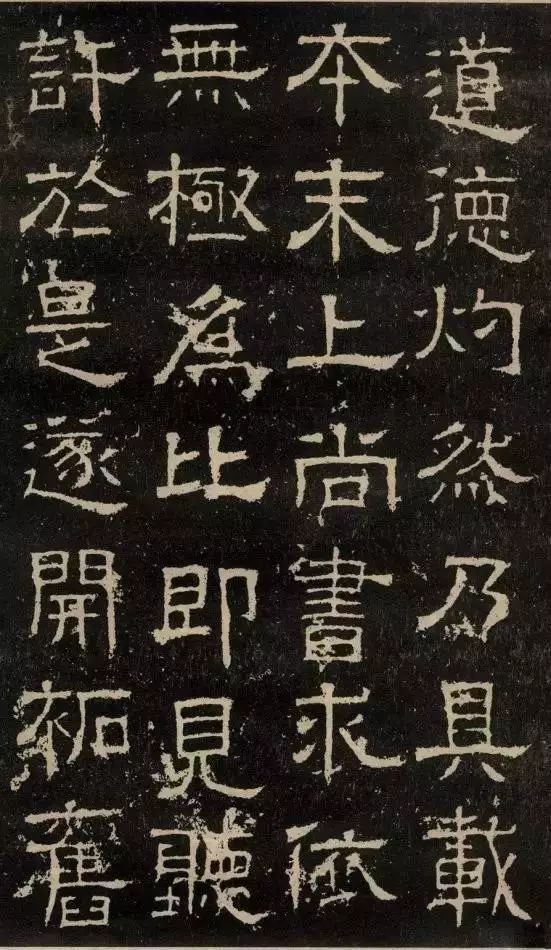 道德灼然乃具載
本末上尚書求依
無極爲比即見聽
許於是遂開祏舊